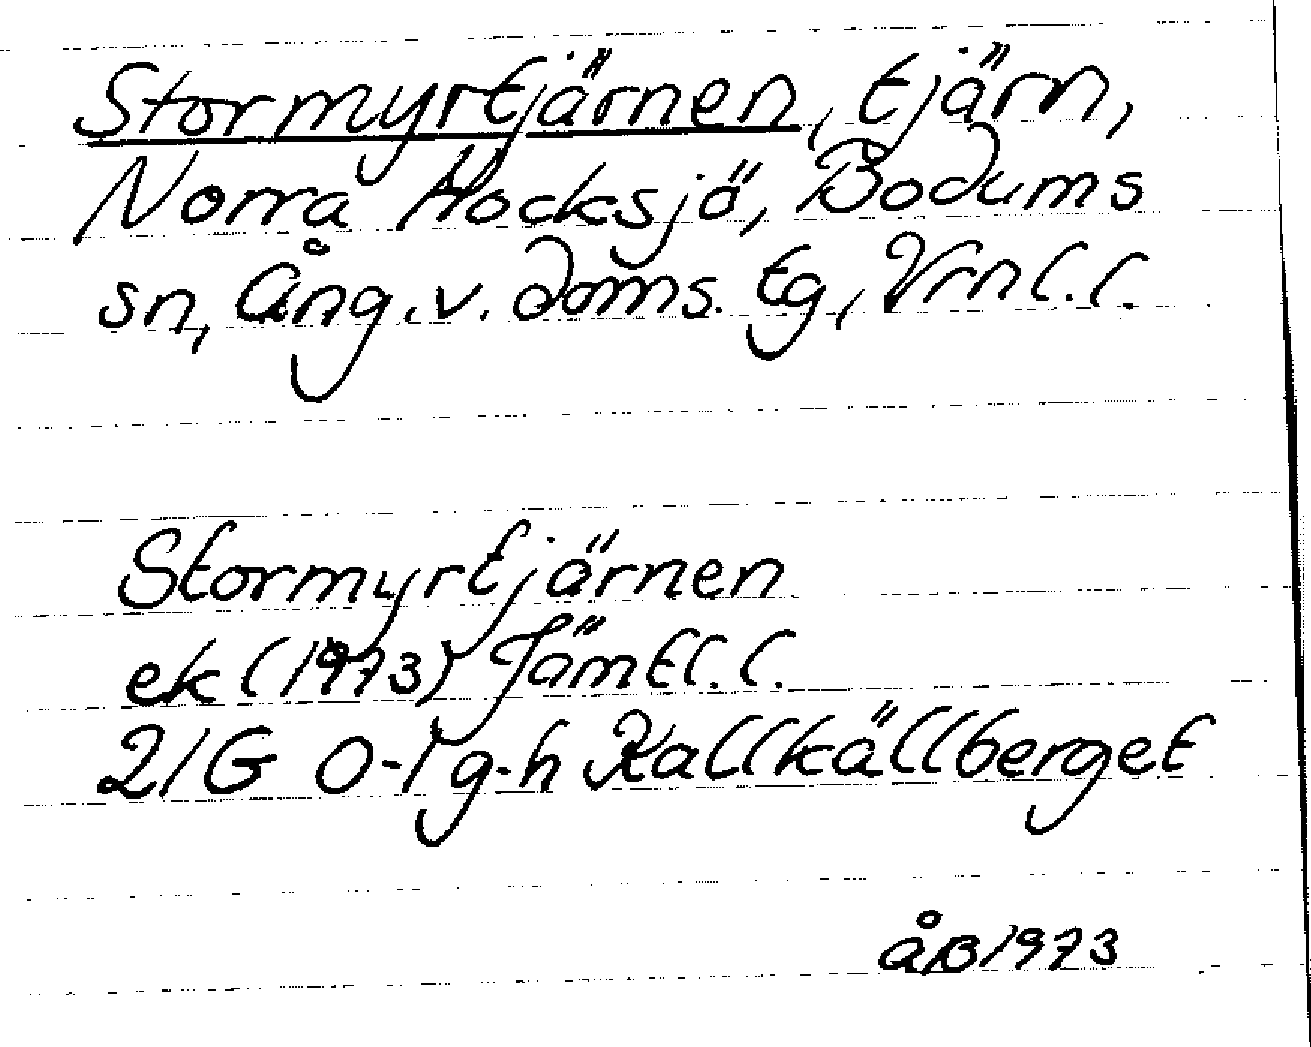 Stormyrtjärnen, tjärn,
Norra Hocksjö, Bodums
sn, Ång.v. doms. tg, Vrnl.l.
Stormyrtjärnen
ek (1973) Jämtl.l.
21G 0-1 g-h Kallkällberget
åB 1973